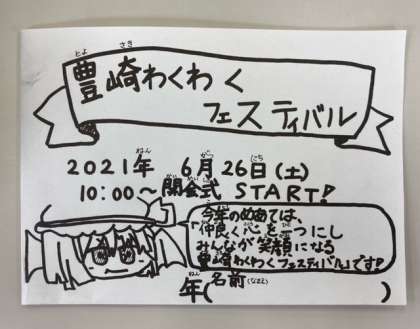 豊崎わくわく
フェスティバル
2021年 6月26日(土)
10:00〜開会式 START!
今年のめあては、
「仲良く心を一つにし
みんなが笑顔になる
豊崎わくわくフェスティバル」です!
年(名前(なまえ) )